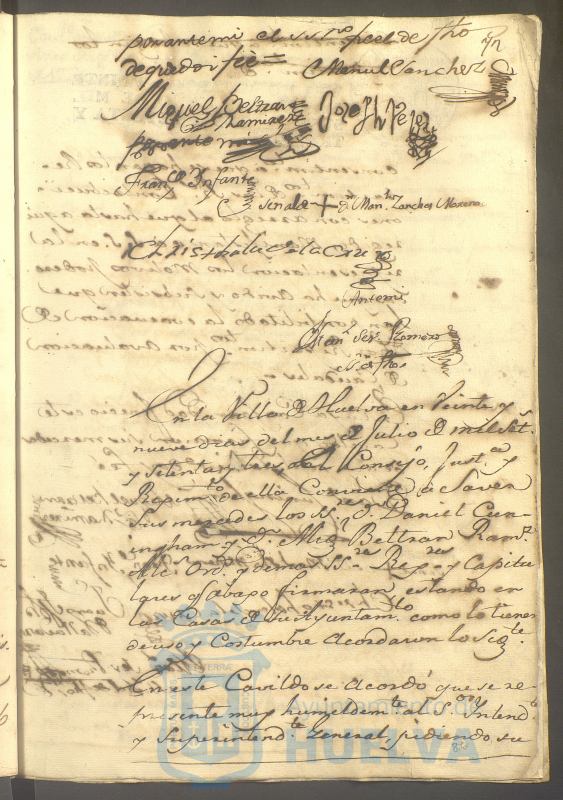 por ante mi el SSno fiel de fho
de que doi fiè =
Manuel Sanchez
Miguel Beltran
Ramirez
Joseph Perez
Franco Infante
Señal + de Manl Sanchez Moreno
Christobal de la Cruz
Ante mi
Romero
En la Villa de Huelva en Veinte y
nueve dias del mes de Julio de mil Sets
y Setenta y tres as el Consejo, Justa y
Regimto de ella Conviene a Saver
Sus mercedes los SSres Dn Daniel Cun-
ingham y Dn Migl Beltran Ramz
Alcs Ords y demas SSres Regres y Capitu
lares qe abajo firmaran, estando en
las Casas de su Ayuntamto como lo tienen
de uso y Costumbre acordaron lo Sigte
En este Cavildo se Acordó que se re-
presente muy humildemte al Sor Intendte
y Superintendte General, pidiendo su
Ayuntamiento de
HUELVA